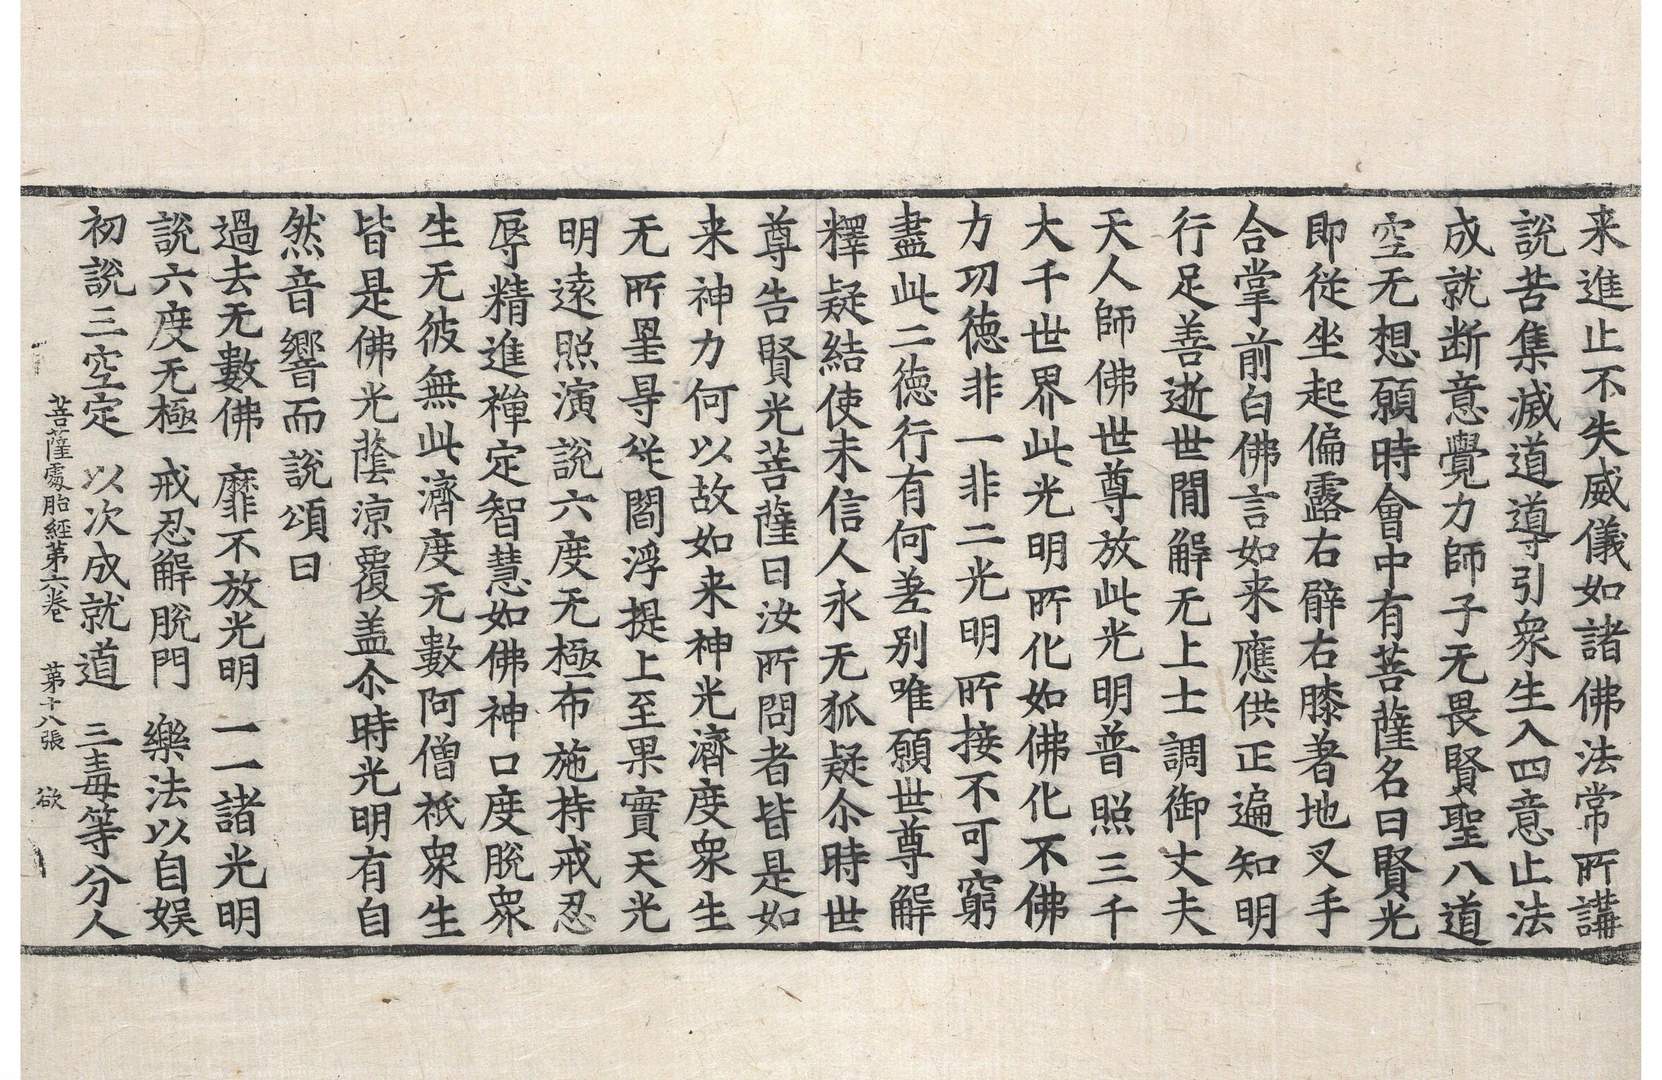 来進止不失威儀如諸佛法常所講
說苦集滅道導引衆生入四意止法
成就断意覺力師子无畏賢聖八道
空无想願時會中有菩薩名曰賢光
即從坐起偏露右臂右膝著地叉手
合掌前白佛言如来應供正遍知明
行足善逝世間解无上士調御丈夫
天人師佛世尊放此光明普照三千
大千世界此光明所化如佛化不佛
力功德非一非二光明所接不可窮
盡此二德行有何差別唯願世尊解
釋疑結使未信人永无狐疑尒時世
尊告賢光菩薩曰汝所問者皆是如
来神力何以故如来神光濟度衆生
无所罣㝵從閻浮提上至果實天光
明遠照演說六度无極布施持戒忍
辱精進禪定智慧如佛神口度脫衆
生无彼無此濟度无數阿僧祇衆生
皆是佛光蔭涼覆盖尒時光明有自
然音響而說頌曰
過去无數佛 靡不放光明 一一諸光明
說六度无極 戒忍解脫門 樂法以自娛
初說三空定 以次成就道 三毒等分人
菩薩處胎經第六卷 第十八張 欲